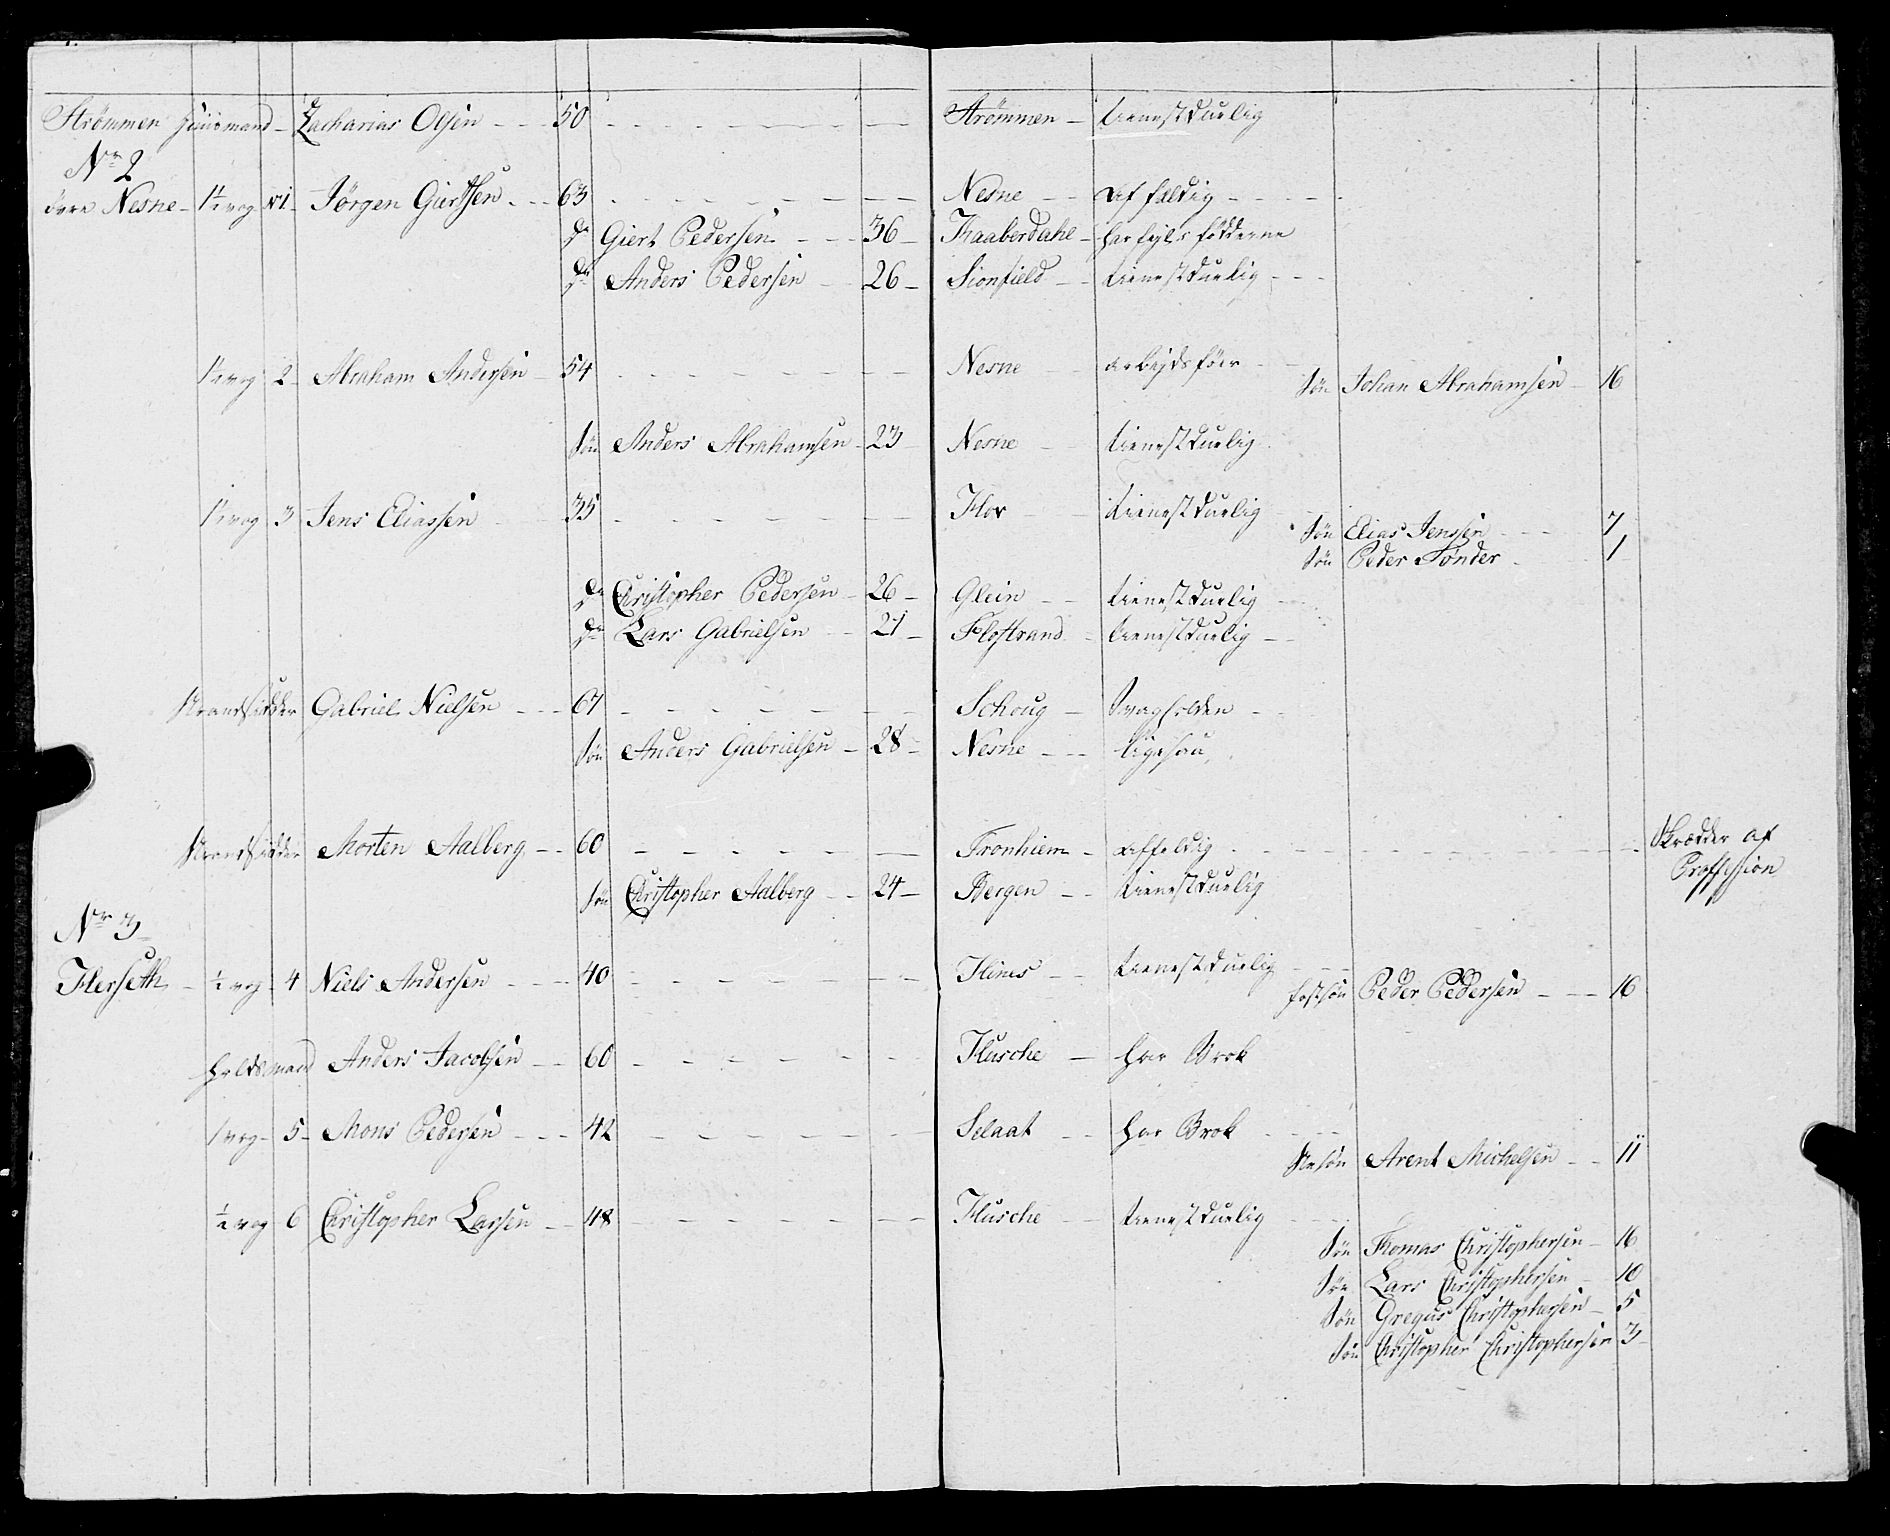 Strømmen Huusmand - Zacharias Olsen - - - 50 Strømmen - tienestduelig
Nr 2
Øvre Nesne - 1½ vog N 1 - Jørgen Giertsen - - - 63 Nesne - - affældig
Dr Giert Pedersen - - - 36 - Kaaberdahl - har fejl i fødderne
Dr Anders Pedersen - - 26 - Sionfield - - tienestduelig - - -
1½ vog 2 - Abraham Andersen - 54 Nesne arbejdsføer - -
Søn Johan Abrahamsen - 16
Søn Anders Abrahamsen - 23 - Nesne - tienestduelig
1½ vog 3 - Jens Eliassen 35 Flor tienestduelig
Søn Elias Jensen - - - 7
Søn Peder Tønder 1
Dr Christopher Pedersen - 26 - Glein - - tienestduelig
Dr Lars Gabrielsen - - 21 - Flostrand - tienestduelig - -
Strandsidder Gabriel Nielsen - - - 67 Schoug - Svagholden - -
Søn Anders Gabrielsen - 28 - Nesne - - ligesaa
Strandsidder Morten Aalberg - - 60 Tronhiem - affeldig - Skrædder af
Proffession
Søn Christopher Aalberg - - 24 - Bergen - - tienestduelig
Nr 3
Herseth - ½ vog - 4 Niels Andersen - - - 40 Hines - - tienestduelig
Postsøn Peder Pedersen - - - 16
Holdsmand Anders Jacobsen - - 60 Husche - har Brok
1 vog - 5 - Mons Pedersen - - - 42 Selaat - - har Brok
Stesøn Arent Michelsen - - 11
½ vog 6 Christopher Larsen - - 48 Husche - - tienestduelig
Søn Thomas Christophersen - 16
Søn Lars Christophersen - 10
Søn Gregus Christophersen - 5
Søn Christopher Christophersen 3 -